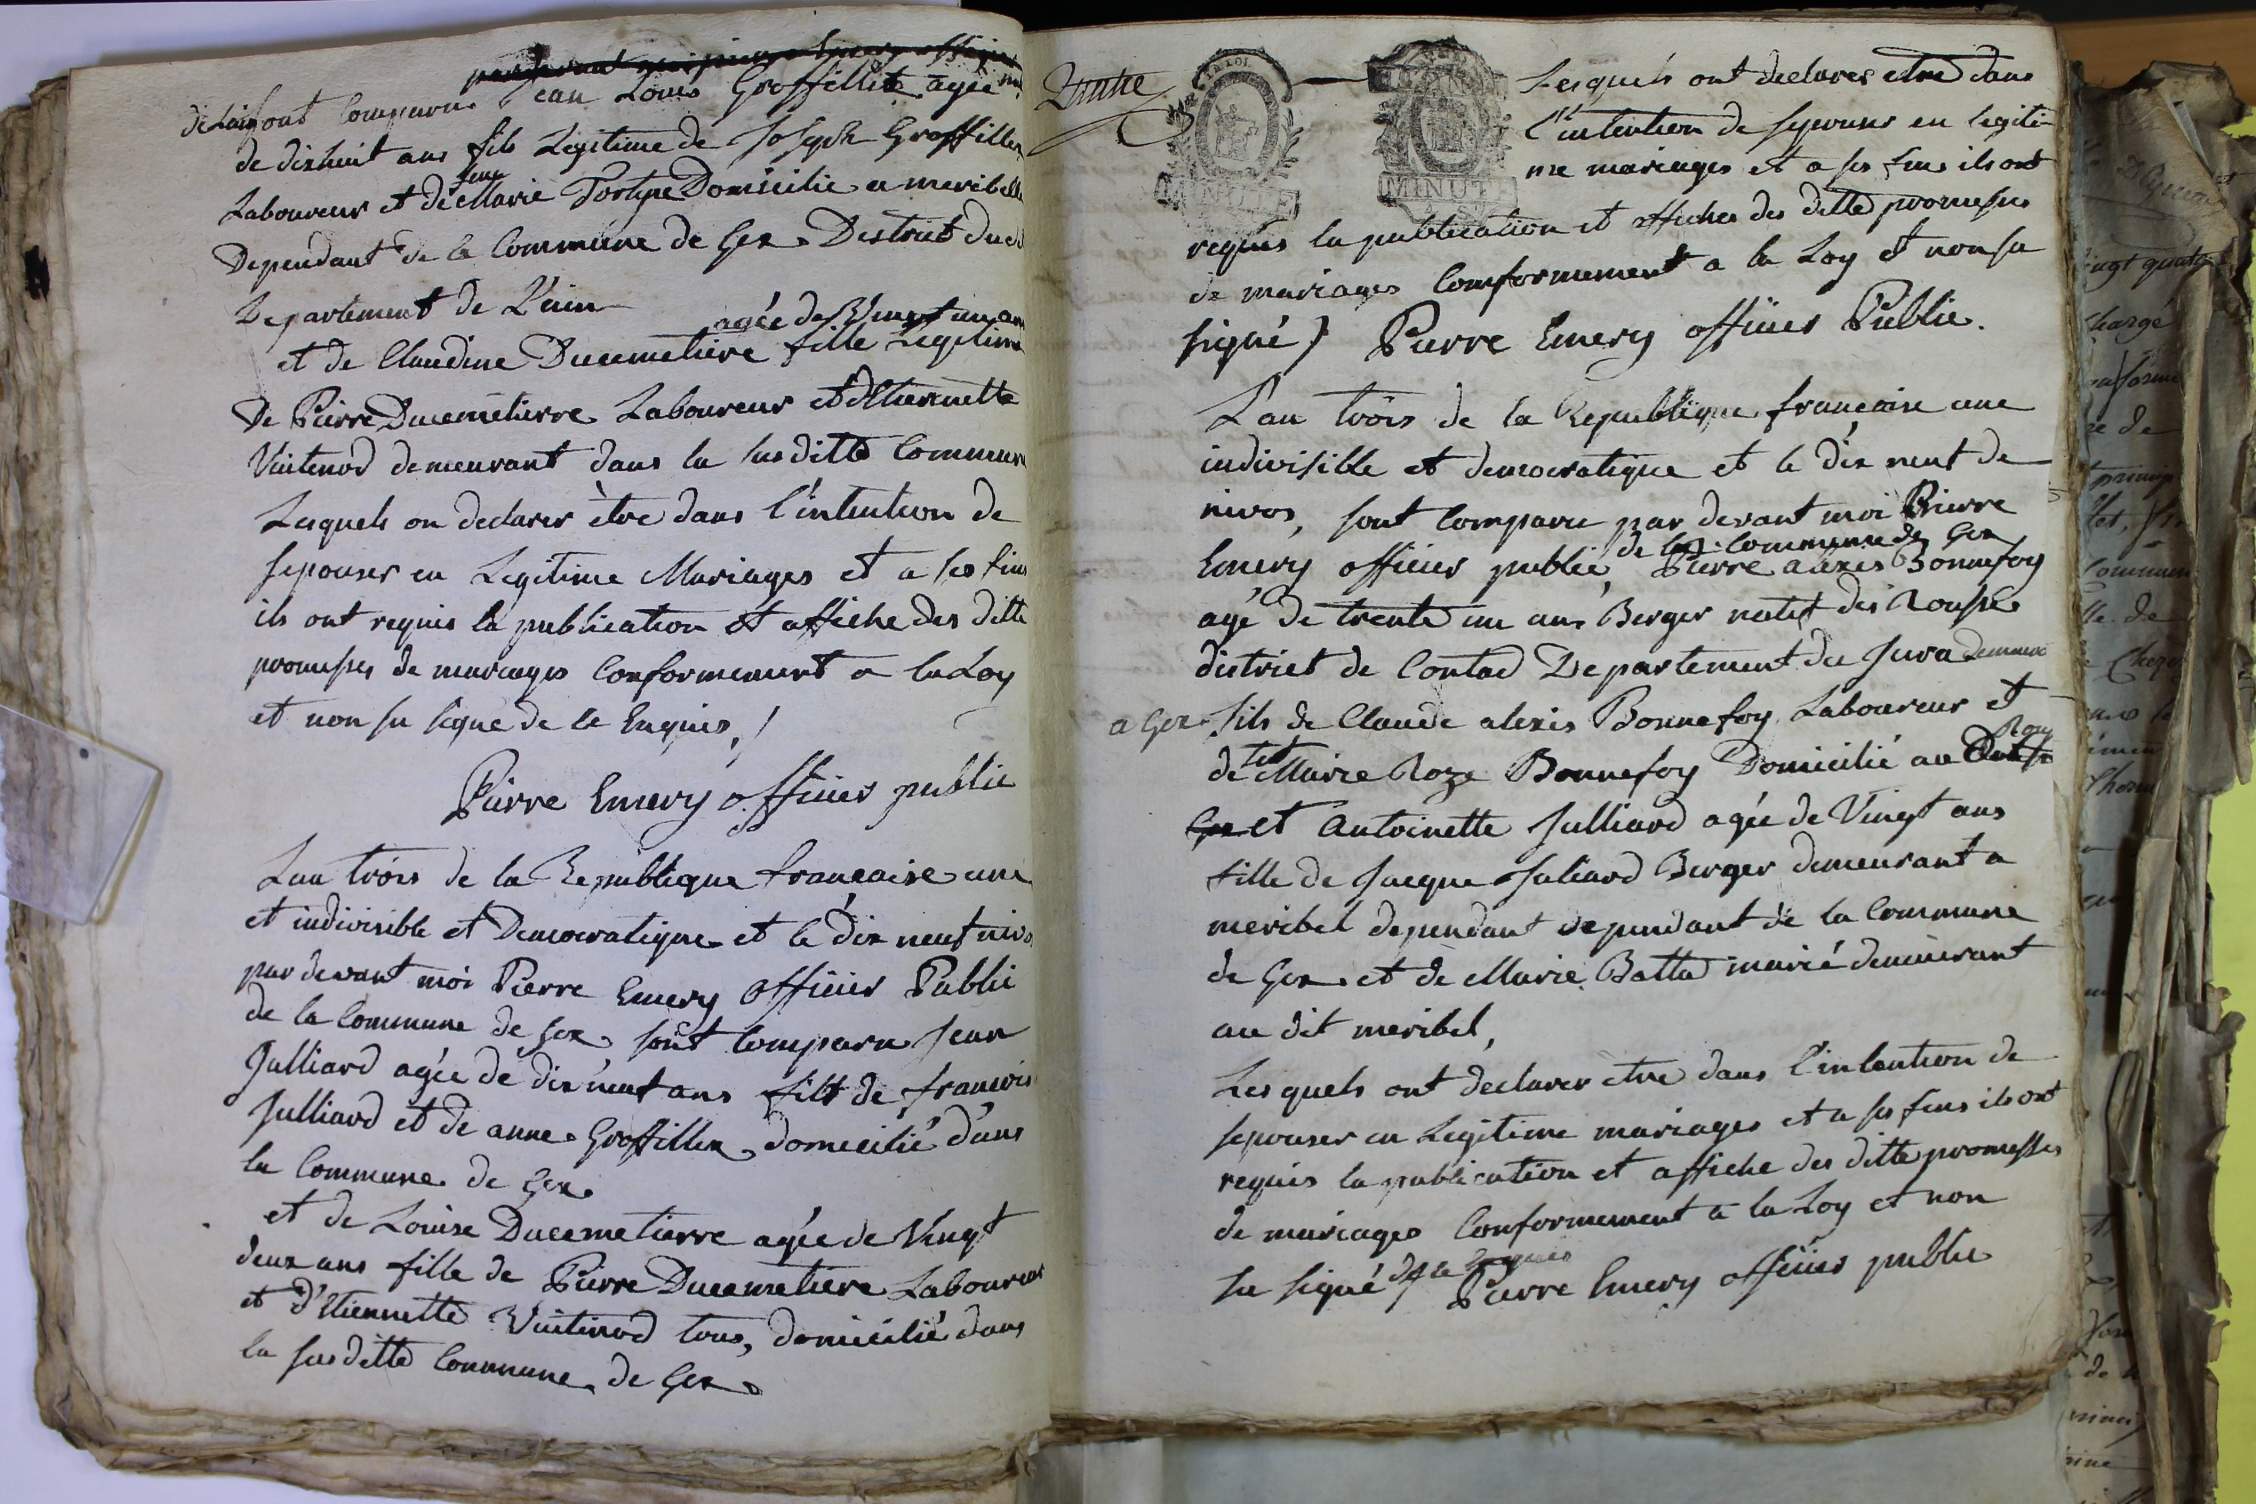 sont comparus Jean Louis Groffillet agée
de dixhuit ans fils Legitime de Joseph Groffiller
Laboureur et de feue Marie Domicilie a meribelle
Dependant de la Commune de Gex District du d
Departement de L'ain
agée de Vingt un an
et de Claudine Ducemetiere fille Legitime
De Pierre Ducemetierre Laboureur et d'Etiennette
Vuitenod demeurant dans la susditte Commune
Lesquels on declarer être dans l'intention de
sepouser en Legitime Mariages et a ses fins
ils ont requis la publication et affiche des ditte
promesses de mariages Conformement a la Loy
et non su signe de le Enquis,
Pierre Emery officier public
Lan trois de la Republique francaise une
et indivisible et Democratique et le dix neuf nivo
par devant moi Pierre Emery officier Public
de la Commune de Gex sont Comparu Jean
Julliard agée de dix neuf ans fils de francois
Julliard et de anne Groffiller domicilié dans
la Commune de Gex
et de Louise Ducemetierre agée de Vingt
deux ans fille de Pierre Ducemetiere Laboureur
et d'Etiennette Vuitenod tous, domicilié dans
la susditte Commune de Gex
LA LOI
MINUTE
MINUTE
Lesquels ont declarer etre dans
l'intention de sepouser en legiti
me mariages et a ses fins ils ont
requis la publication et affiches des ditte promesses
de mariages Conformement a la Loy et non su
signé Pierre Emery officier Public.
L'an trois de la Republique francaise une
indivisible et democratique et le dix neuf de
nivos, sont Comparu par devant moi Pierre
Emery officier public de la Commune de Gex Pierre alexis Bonnefoy
agé de trente un ans Berger natif des Rousse
district de Contad Departement du Jura demeur
a Gex fils de Claude alexis Bonnefoy Laboureur et
de Marie Roze Bonnefoy Domicilié au Rous
Gex et Antoinette Julliard agée de Vingt ans
fille de Jacque Juliard Berger demeurant a
meribel dependant dependant de la Commune
de Gex et de Marie Batta marié demeurant
au dit meribel,
Les quels ont declarer etre dans l'intention de
sepouser en Legitime mariages et a ses fins ils ont
requis la publication et affiche des ditte promesses
de mariages Conformement a la Loy et non
su signé de le Enquis
Pierre Emery officier public